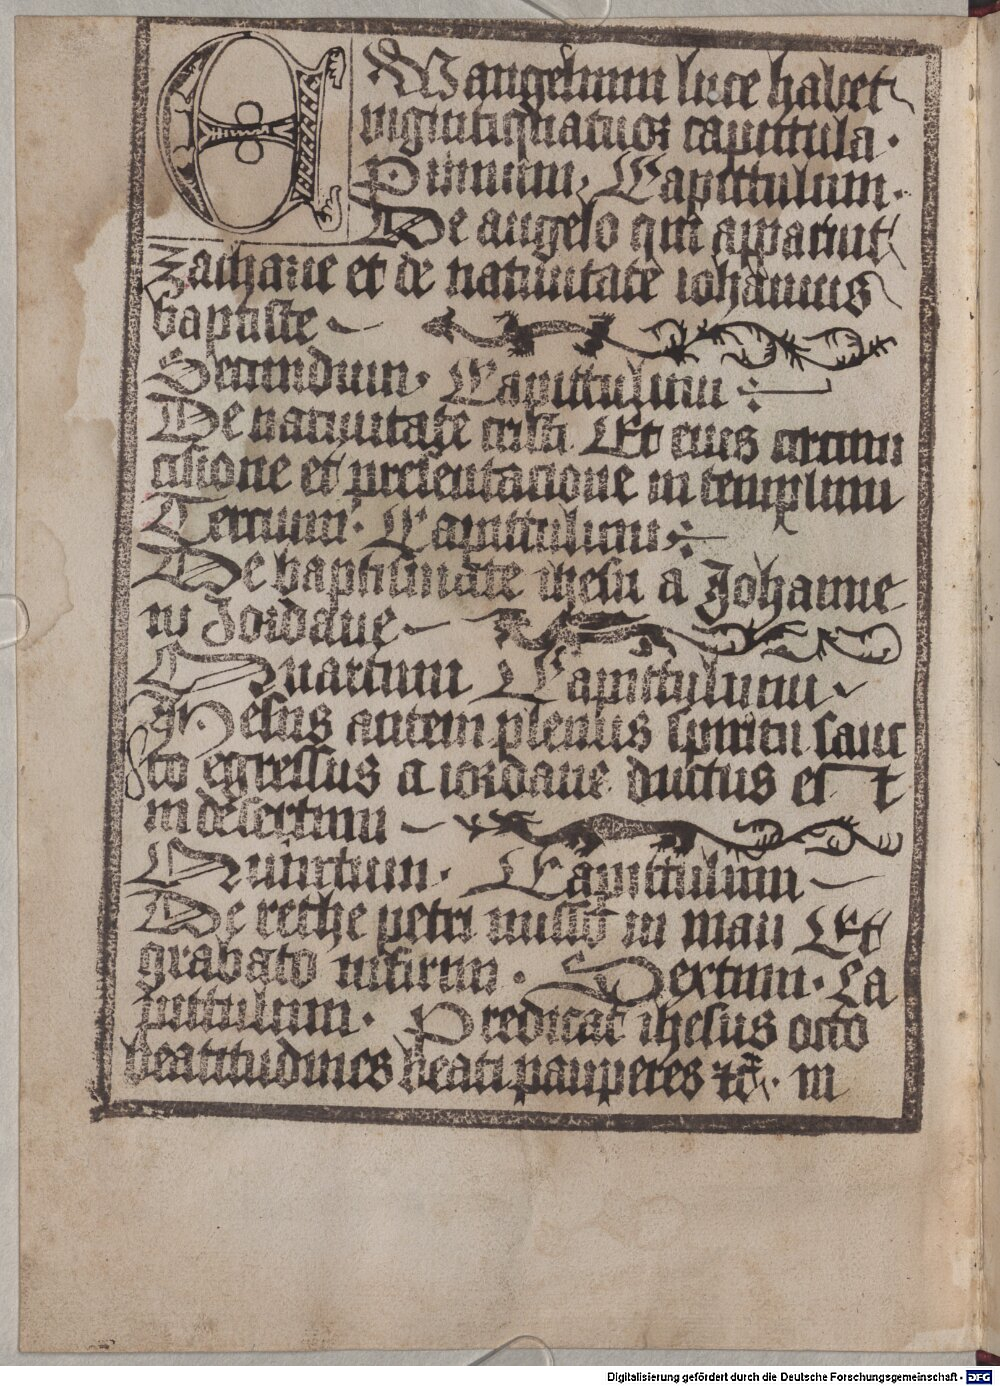 EWangelium luce habet
viginti quatuor capittula.
Primum. Capittulum.
De angelo qui apparuit
zacharie et de nativitate iohannis
baptiste
Secundum. Capittulum :
De nativitate cristi. Et eius circum
cisione et presentacione in templum
Tercium. Capittulum :
De baptismate ihesu a Johanne
in Jordane
Quartum Capittulum
Ihesus autem plenus spiritu sanc
to egressus a iordane ductus est
in desertum
Quintum. Capittulum
De rethe petri misso in mari Et
grabato infirmi. Sextum. Ca
pittulum. Predicat ihesus octo
beatitudines beati pauperes zc. m
Digitalisierung gefördert durch die Deutsche Forschungsgemeinschaft - DFG